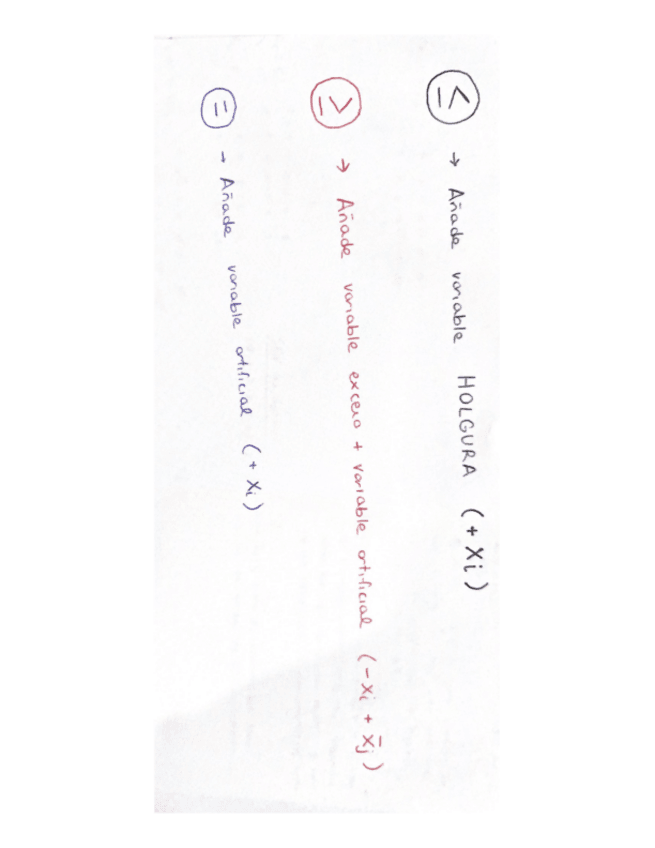 ≤ → Añade variable HOLGURA (+ Xi)
≥ → Añade variable exceso + variable artificial (- Xi + X̄j)
= → Añade variable artificial (+ Xi)